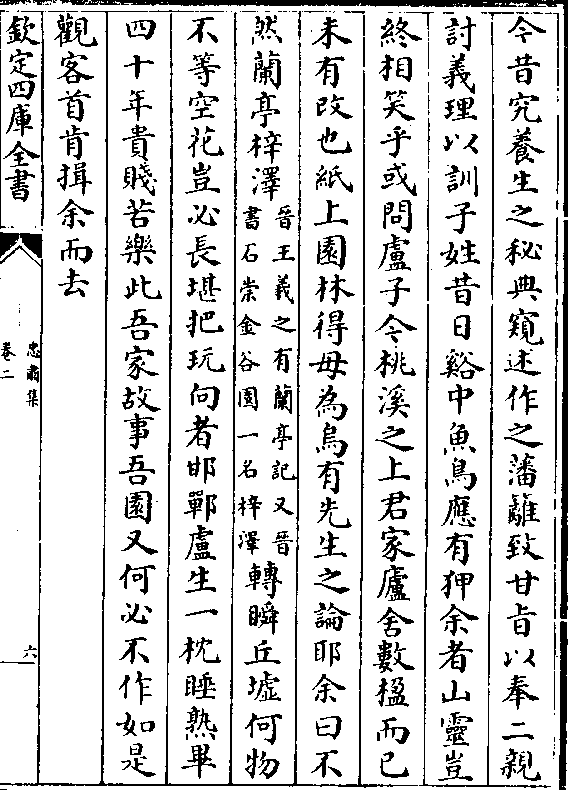 今昔究養生之秘典窺述作之藩籬致甘旨以奉二親
討義理以訓子姓昔日谿中魚鳥應有狎余者山靈豈
終相笑乎或問盧子今桃溪之上君家廬舍數楹而已
未有改也紙上園林得毋為烏有先生之論耶余曰不
然蘭亭梓澤晉王羲之有蘭亭記又晉書石崇金谷園一名梓澤轉瞬丘墟何物
不等空花豈必長堪把玩向者邯鄲盧生一枕睡熟畢
四十年貴賤苦樂此吾家故事吾園又何必不作如是
觀客首肯揖余而去
欽定四庫全書
忠肅集
卷二
六